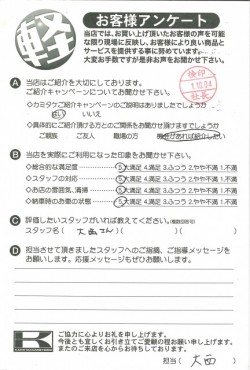 軽
お客様アンケート
当店では、お買い上げ頂いたお客様の声を可能
な限り現場に反映し、お客様により良い商品と
サービスを提供する事に努めています。
大変お手数ですが是非お声をお聞かせ下さい。
検印
1.10.04
社長
A 当店はご紹介を大切にしております。
ご紹介キャンペーンについてお聞かせ下さい。
◇カミタケご紹介キャンペーンのご説明はありましたでしょうか
はい いいえ
◇具体的にご紹介頂ける方とのご関係をお聞かせ頂けますでしょうか
ご親族 ご友人 職場の方 機会があれば紹介したい
B 当店を実際にご利用になった印象をお聞かせ下さい。
◇総合的な満足度 5.大満足 4.満足 3.ふつう 2.やや不満 1.不満
◇スタッフの対応 5.大満足 4.満足 3.ふつう 2.やや不満 1.不満
◇お店の雰囲気、清掃 5.大満足 4.満足 3.ふつう 2.やや不満 1.不満
◇納車時のお車の状態 5.大満足 4.満足 3.ふつう 2.やや不満 1.不満
C 評価したいスタッフがいれば教えてください。
スタッフ名( 大西さん )( )( )
D 担当させて頂きましたスタッフへのご指摘、ご指導メッセージを
お願いします。応援メッセージもぜひお願いします。
K
ご協力に心よりお礼を申し上げます。
今後とも宜しくお引き立てご愛顧の程お願い申し上げます。
またのご来店を心からお待ちしております。
担当( 大西 )